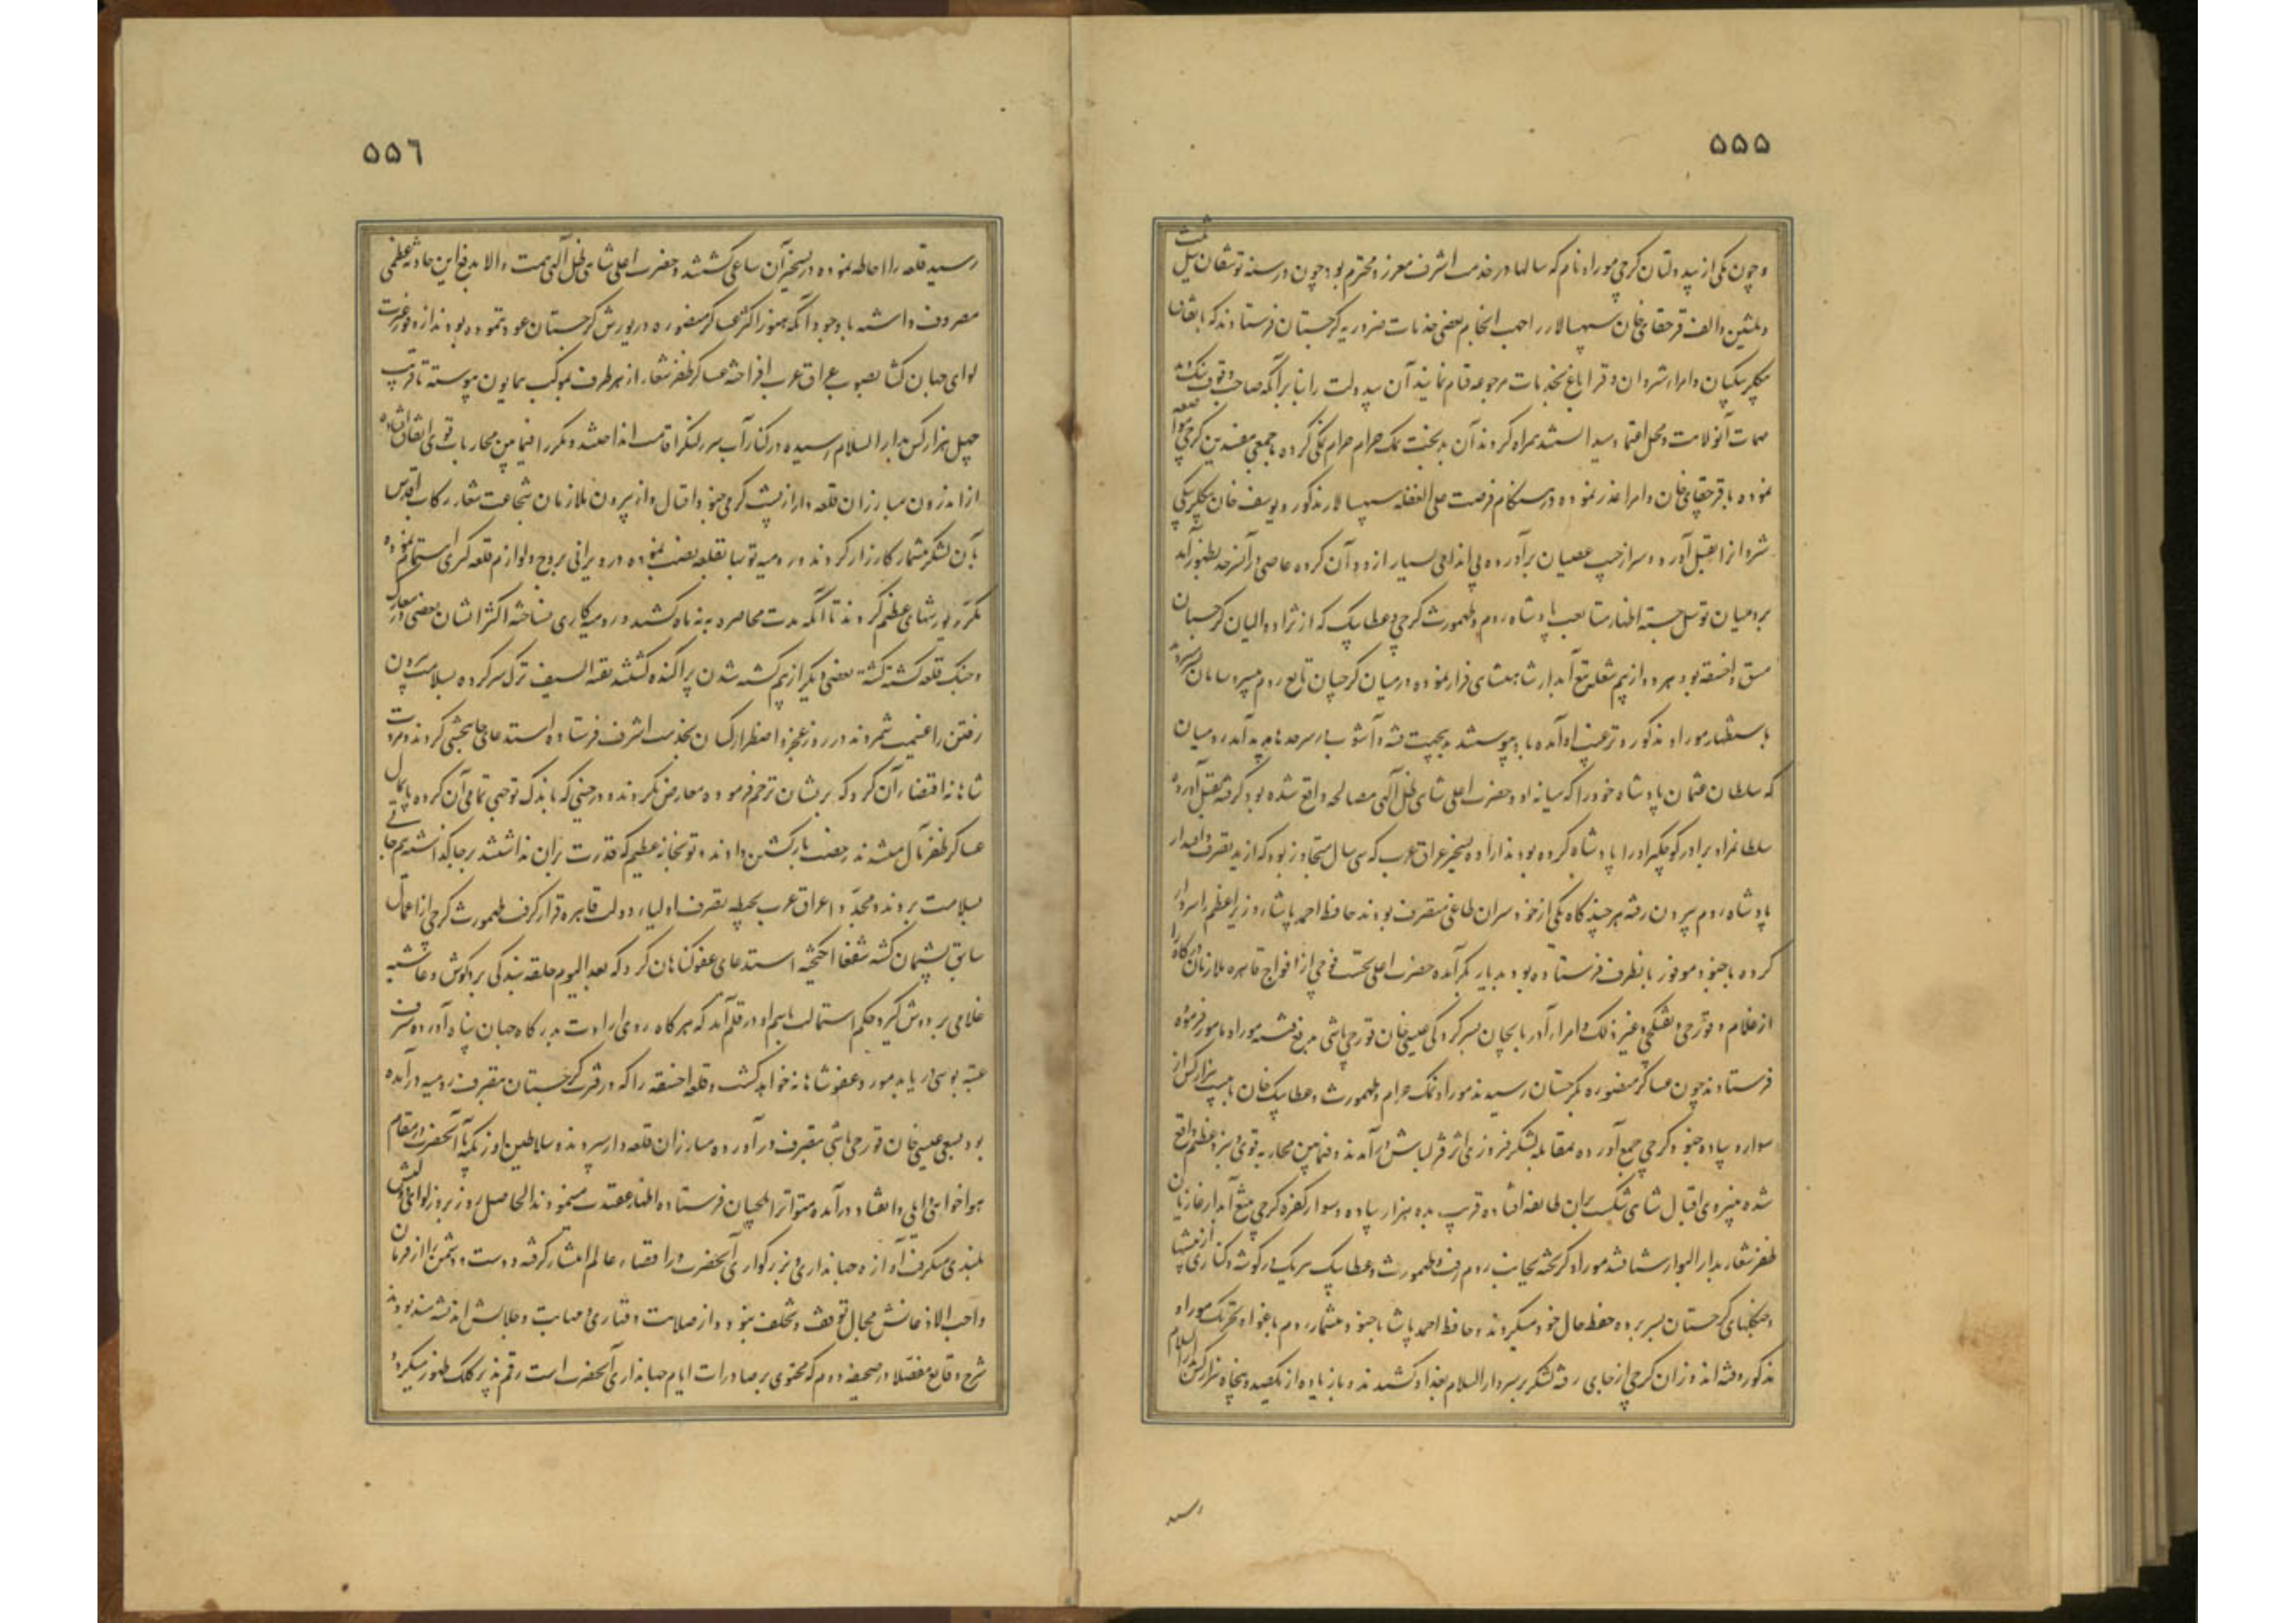 ۵۵۵
و چون یکی از بیدولتان گرجی موراو نام که سالها در خدمت اشرف معزز و محترم بود چون در سنه توشقان ئیل
و ثلثین و الف قرچقای خان سپهسالار را جهت انجام بعضی خدمات ضروریه بگرجستان فرستادند که باتفاق
بیگلربیگیان و امراء شروان و قراباغ بخدمات مرجوعه قیام نمایند آن بیدولت را بنا بر آنکه صاحب وقوف
مهمات آنولایت و محل اعتماد میدانستند همراه کردند آن بدبخت نمک حرام حرام نمکی کرده با جمعی مفسدین گرجی
نموده با قرچقای خان و امرا غدر نموده در هنگام فرصت علی الغفله سپهسالار مذکور و یوسف خان بیگلربیگی
شروانرا بقتل آورد و سر از جیب عصیان برآورده بی اندامی بسیار از او و آن گروه عاصی در آنسرحد بظهور آمد
برومیان توسل جسته اظهار متابعت پادشاه روم و طهمورث گرجی و عطا بیک که از نژاد والیان گرجستان
مسق و اخسقه بود هر دو از بیم شعله تیغ آبدار شاهنشاهی فرار نموده در میان گرجیان تابع روم بی سر و سامان
باستظهار موراو مذکور و ترغیب او آمده باو پیوستند بدینجهت فتنه و آشوب بسیار در سرحدها پدید آمد رومیان
که سلطان عثمان پادشاه خود را که میانه او و حضرت اعلی شاهی ظل اللهی مصالحه واقع شده بود گرفته بقتل آورده
سلطانمراد برادر کوچکتر او را پادشاه کرده بودند اراده تسخیر عراق عرب که سی سال متجاوز بود که از ید تصرف و اقتدار
پادشاه روم بیرون رفته هر چند گاه یکی از خودسران طاغی متصرف بودند حافظ احمد پاشا وزیر اعظم را سردار
کرده با جنود موفور بانطرف فرستاده بود بدیار بکر آمده حضرت اعلی نخست فوجی از افواج قاهره ملازمان درگاه را
از غلام و قورچی و تفنکچی و غیر ذلک و امراء آذربایجان بسرکردگی عیسی خان قورچی باشی بدفع فتنه موراو مامور فرموده
فرستادند چون عساکر منصوره بگرجستان رسیدند موراو نمک حرام و طهمورث و عطا بیک خان با بیست هزار کس از
سوار و پیاده جنود گرجی جمع آورده بمقابله لشکر فیروزی اثر قزلباش درآمدند و فیمابین محاربه قوی و نبرد عظیم واقع
شده بنیروی اقبال شاهی شکست بران طایفه افتاده قریب بده هزار پیاده و سوار کفره گرجی بتیغ آبدار غازیان
ظفر شعار بدار البوار شتافتند موراو گریخته بجانب روم رفت و طهمورث و عطا بیک هر یک در گوشه و کناری از بیشها
و جنگلهای گرجستان بسر برده حفظ حال خود میکردند و حافظ احمد پاشا با جنود بیشمار روم باغواء و تحریک موراو
مذکور و فتنه اندوزان گرجی از جای رفته لشکر بر سر دار السلام بغداد کشیدند و با زیاده از یکصد و پنجاه هزار کس بدار السلام
رسید
۵۵٦
رسید قلعه را احاطه نموده در تسخیر آن ساعی گشتند و حضرت اعلی شاهی ظل اللهی همت والا بدفع این حادثه عظمی
مصروف داشته با وجود آنکه هنوز اکثر عساکر منصوره در یورش گرجستان عود ننموده بودند از وفور غیرت
لوای جهان گشا بصوب عراق عرب افراخته عساکر ظفر شعار از هر طرف بموکب همایون پیوسته تا قریب
چهل هزار کس بدار السلام رسیده در کنار آب بر سر لنگر اقامت انداختند و مکررا فیمابین محاربات قوی اتفاق افتاده
از اندرون مبارزان قلعه دار از پشت گرمی جنود اقبال و از بیرون ملازمان شجاعت شعار رکاب اقدس
با آن لشکر بیشمار کارزار کردند و رومیه توپها بقلعه نصب نموده در ویرانی بروج و لوازم قلعه گیری اهتمام نموده
مکرر یورشهای عظیم کردند تا آنکه مدت محاصره به نه ماه کشید و رومیه کاری نساخته اکثر ایشان بعضی در معارک
و جنگ قلعه کشته گشته بعضی دیگر از بیم کشته شدن پراکنده گشتند بقیة السیف ترک سر کرده بسلامت بیرون
رفتن را غنیمت شمردند و در روز عجز و اضطرار کسان بخدمت اشرف فرستاده استدعای جانبخشی کردند و مروت
شاهانه اقتضاء آن کرد که بریشان ترحم فرموده معارض نگردند و در حینی که باندک توجهی تمامی آن گروه پایمال
عساکر ظفر مآل میشدند رخصت بازگشتن دادند و توپخانه عظیم که قدرت بران نداشتند بر جا گذاشته نیم جانی
بسلامت بردند و مجددا عراق عرب بحیطه تصرف اولیاء دولت قاهره قرار گرفت طهمورث گرجی از اعمال
سابق پشیمان گشته شفعا انگیخته استدعای عفو گناهان کرد که بعد الیوم حلقه بندگی بر گوش و غاشیه
غلامی بر دوش گیرد حکم استمالت باسم او در قلم آمد که هر گاه روی ارادت بدرگاه جهان پناه آورده شرف
عتبه بوسی دریابد مورد عفو شاهانه خواهد گشت و قلعه اخسقه را که در فترت گرجستان بتصرف رومیه درآمده
بود بسعی عیسی خان قورچی باشی بتصرف درآورده مبارزان قلعه دار سپردند و سلاطین اوزبکیه با آنحضرت در مقام
هواخواهی و ایلی و انقیاد درآمده متواترا ایلچیان فرستاده اظهار عقیدت مینمودند الحاصل روز بروز لوای دولتش
بلندی میگرفت آوازه جهانداری و بزرگواری آنحضرت در اقصاء عالم انتشار گرفته دوست و دشمن را از فرمان
واجب الاذعانش مجال توقف و تخلف نبود و از صلابت و قهاری و مهابت و جلالش اندیشه مند بودند
شرح وقایع مفصلا در صحیفه دوم که محتوی بر صادرات ایام جهانداری آنحضرت است رقم پذیر کلک ظهور میگردد